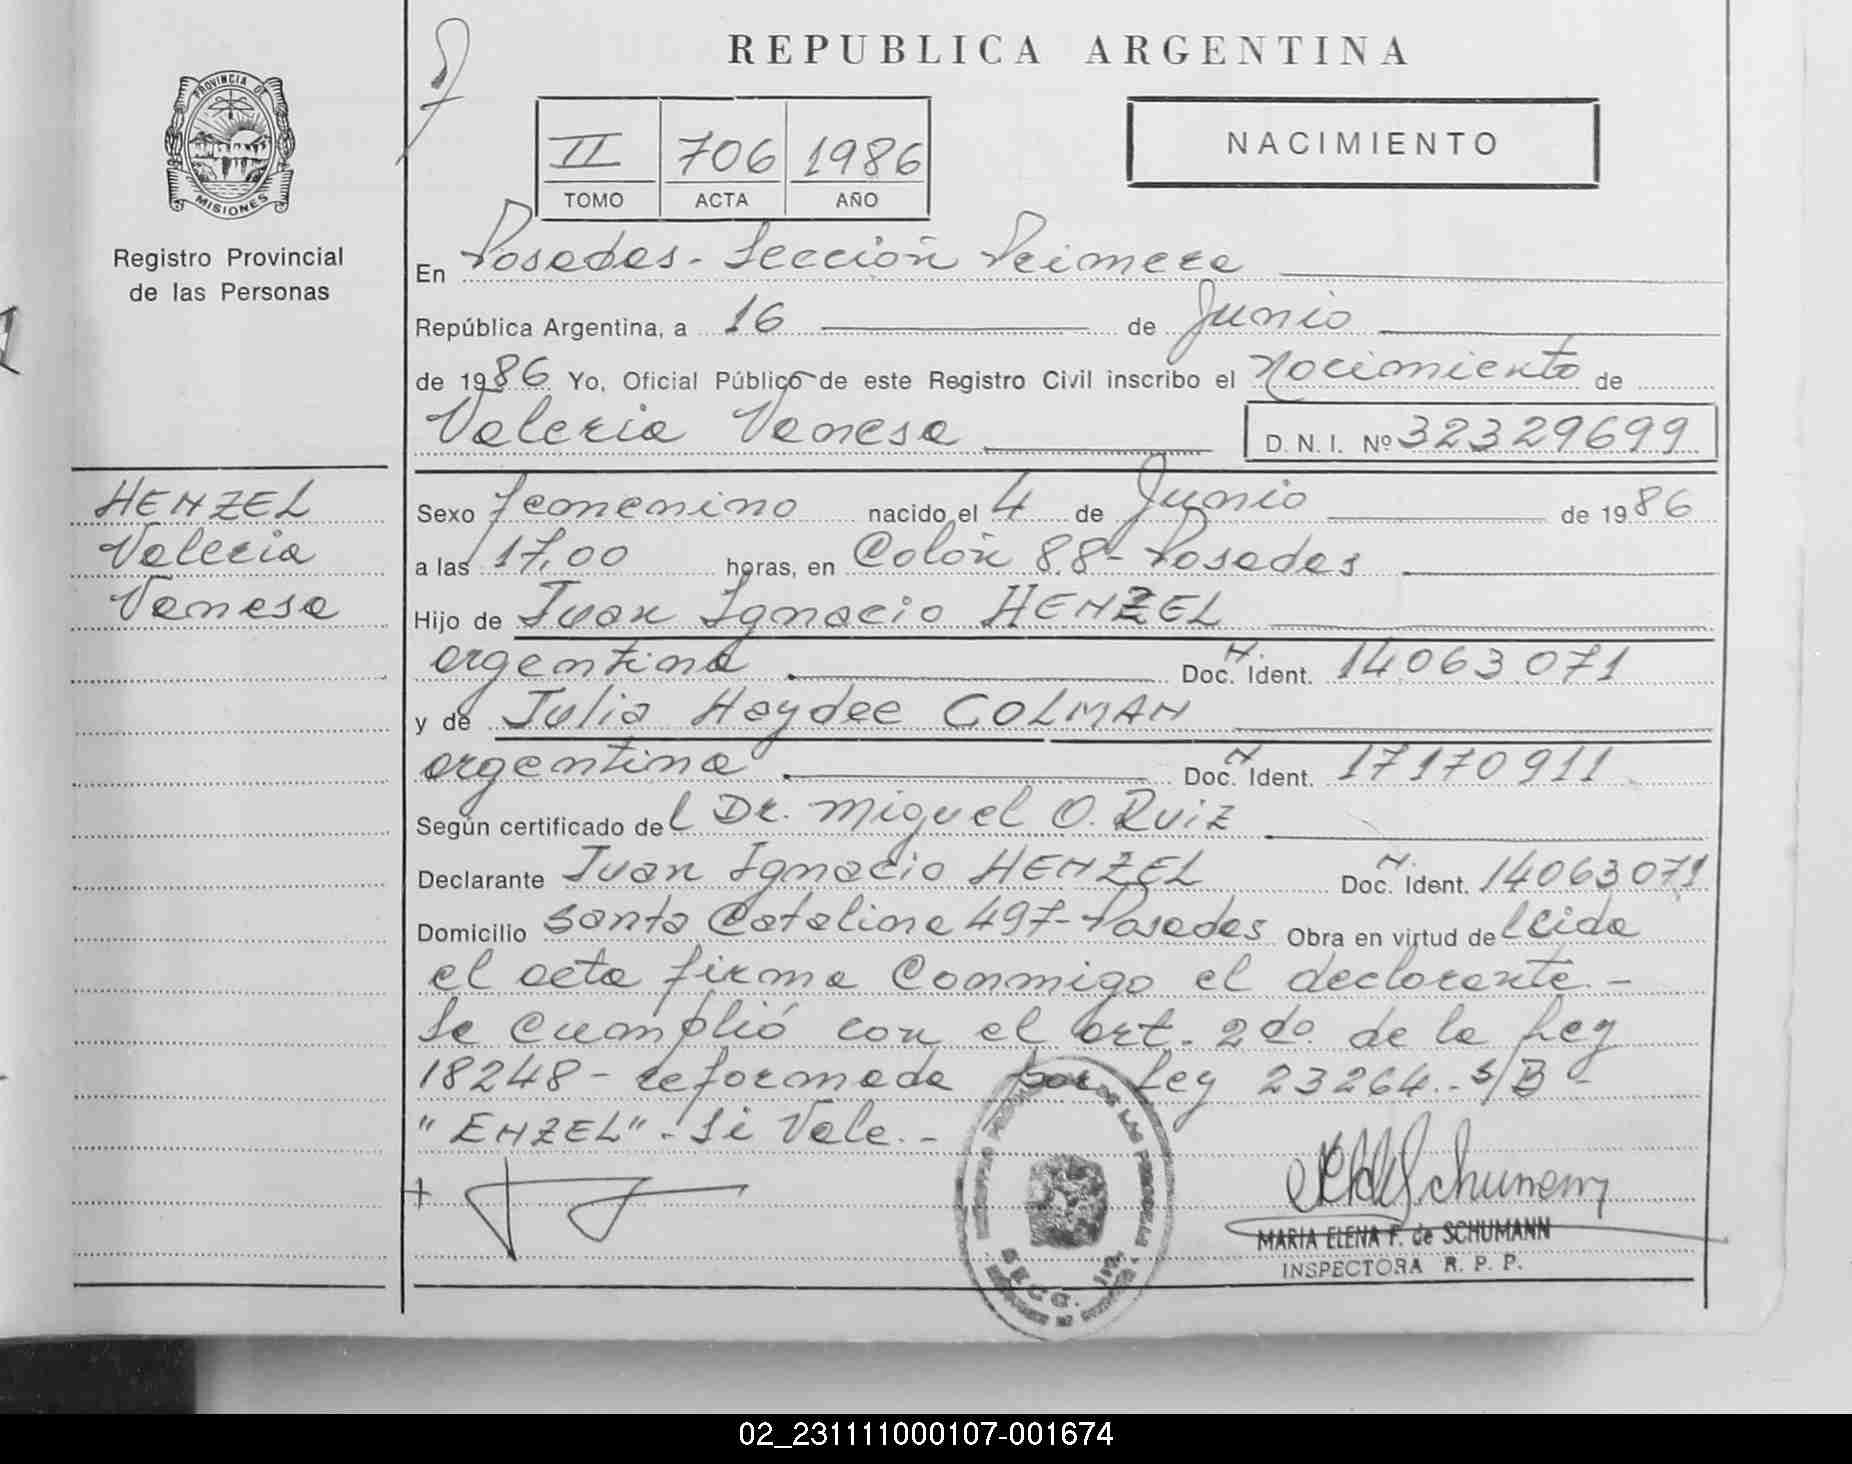 REPUBLICA ARGENTINA
PROVINCIA DE
MISIONES
Registro Provincial
de las Personas
II 706 1986
TOMO ACTA AÑO
NACIMIENTO
En Posadas - Sección Primera
República Argentina, a 16 de Junio
de 1986 Yo, Oficial Público de este Registro Civil inscribo el Nacimiento de
Valeria Vanesa D.N.I. Nº 32329699
HENZEL
Valeria
Vanesa
Sexo femenino nacido el 4 de Junio de 1986
a las 17,00 horas, en Colón 88 - Posadas
Hijo de Juan Ignacio HENZEL
argentino Doc. N. Ident. 14.063.071
y de Julia Haydee COLMAN
argentina Doc. N. Ident. 17170911
Según certificado del Dr. Miguel O. Ruiz
Declarante Juan Ignacio HENZEL Doc. N. Ident. 14063071
Domicilio Santa Catalina 497 - Posadas Obra en virtud de leida
el acta firma conmigo el declarante. -
Se cumplió con el art. 2do. de la Ley
18248 - reformada por Ley 23264. - s/B -
"ENZEL" - Si Vale. -
MARIA ELENA F. de SCHUMANN
INSPECTORA R. P. P.
SECC. 1ra.
02_231111000107-001674